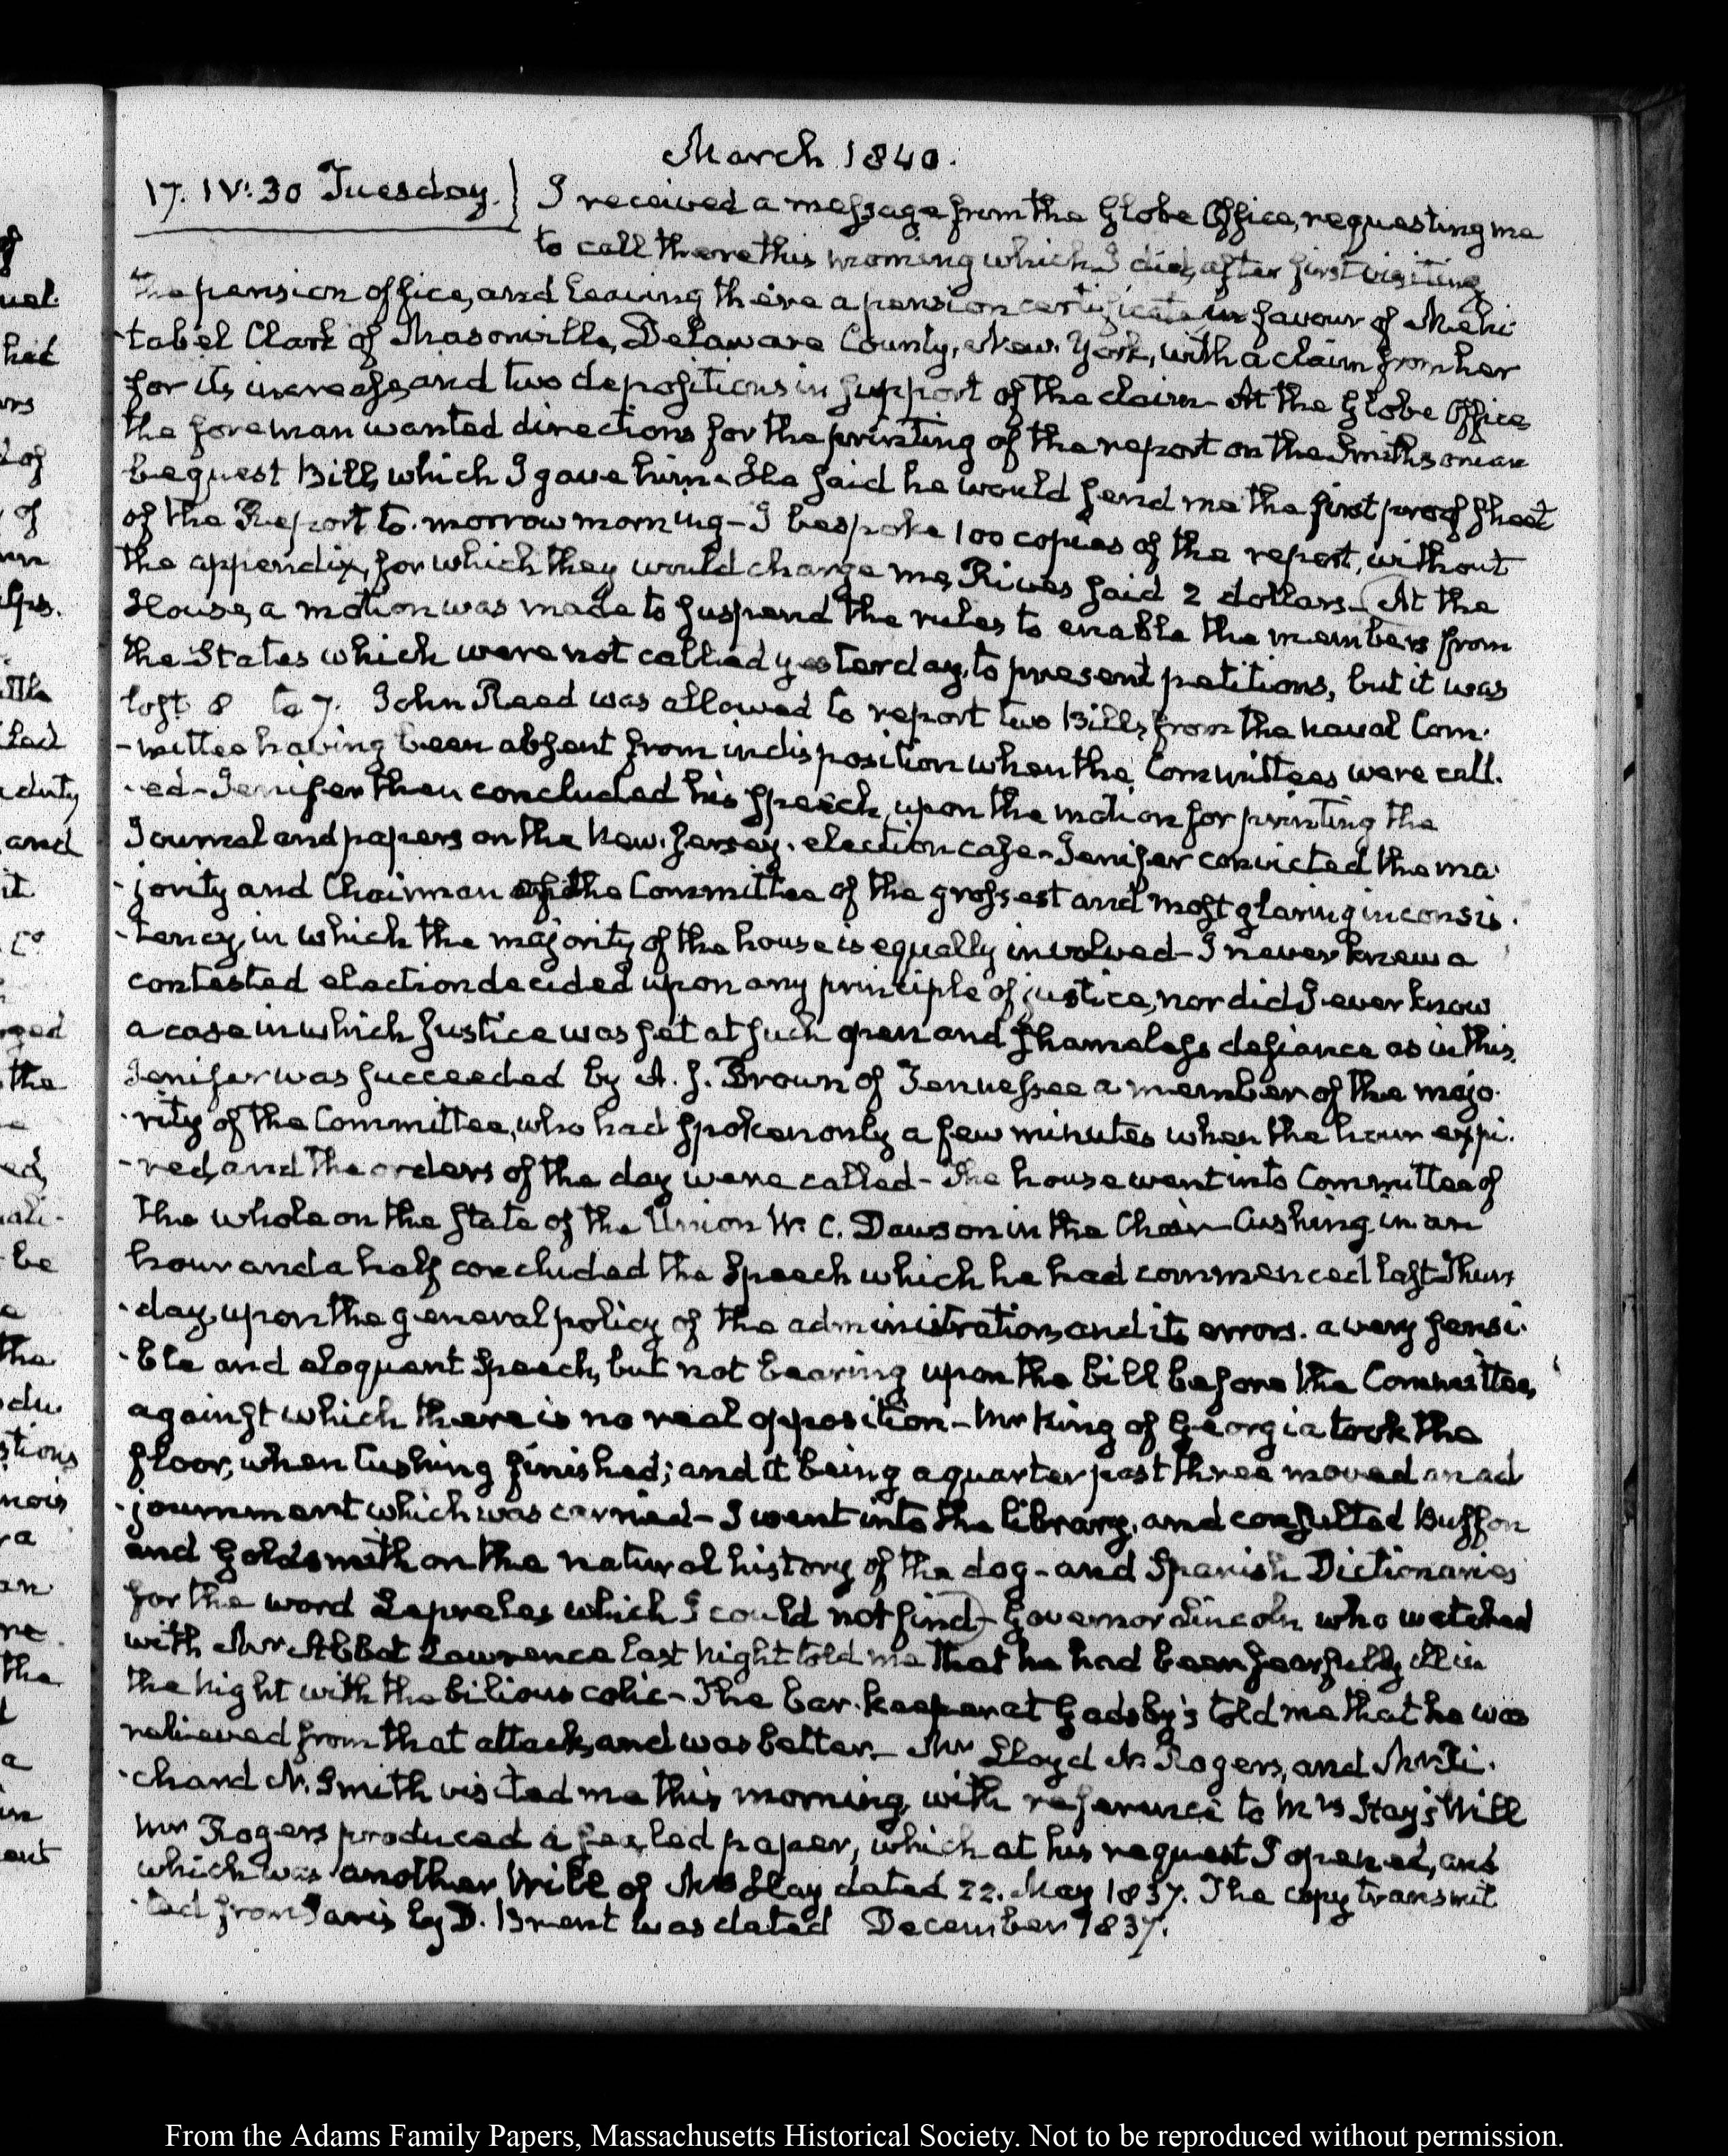 March 1840.
17. IV:30 Tuesday. I received a message from the Globe Office, requesting me
to call there this morning which I did, after first visiting
the pension office, and leaving there a pension certificate in favour of Mehi-
-tabel Clark of Masonville, Delaware County, New-York, with a claim from her
for its increase, and two depositions in support of the claim- At the Globe Office
the foreman wanted directions for the printing of the report on the Smithsonian
bequest Bill, which I gave him. He said he would send me the first proof sheet
of the Report to-morrow morning- I bespoke 100 copies of the report, without
the appendix, for which they would charge me, Rives said 2 dollars- (At the
House, a motion was made to suspend the rules to enable the members from
the States which were not called yesterday, to present petitions, but it was
lost 8 to 7. John Reed was allowed to report two Bills from the naval Com-
-mittee having been absent from indisposition when the Committees were call-
-ed- Jenifer then concluded his speech, upon the motion for printing the
Journal and papers on the New-Jersey election case- Jenifer convicted the ma-
-jority and Chairman of the Committee of the grossest and most glaring inconsis-
-tency, in which the majority of the house is equally involved- I never knew a
contested election decided upon any principle of justice, nor did I ever know
a case in which Justice was set at such open and shameless defiance as in this.
Jenifer was succeeded by A. J. Brown of Tennessee a member of the majo-
-rity of the Committee, who had spoken only a few minutes when the hour expi-
-red, and the orders of the day were called- The house went into Committee of
the whole on the state of the Union W. C. Dawson in the Chair- Cushing in an
hour and a half concluded the Speech which he had commenced last Thurs-
-day, upon the general policy of the administration, and its errors. a very sensi-
-ble and eloquent Speech, but not bearing upon the bill before the Committee,
against which there is no real opposition- Mr King of Georgia took the
floor, when Cushing finished; and it being a quarter past three moved an ad
-journment which was carried- I went into the library, and consulted Buffon
and Goldsmith on the natural history of the dog- and Spanish Dictionaries
for the word Leprales which I could not find)- Governor Lincoln who watched
with Mr Abbot Lawrence last night told me that he had been fearfully ill in
the night with the bilious colic- The bar-keeper at Gadsby's told me that he was
relieved from that attack, and was better- Mr Lloyd N. Rogers, and Mr Ri-
-chard N. Smith visited me this morning, with reference to Mrs Hay's Will
Mr Rogers produced a sealed paper, which at his request I opened, and
which was another Will of Mrs Hay dated 22. May 1837. The copy transmit
-ted from Paris by D. Brent was dated December 1837.
From the Adams Family Papers, Massachusetts Historical Society. Not to be reproduced without permission.